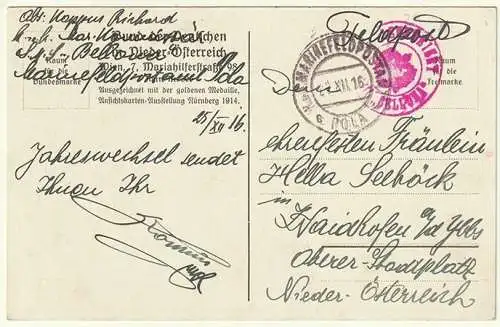 Abs: Kappus Richard
Bund der Deutschen
in Nieder-Österreich
Wien, 7. Mariahilferstraße 98
Marinefeldpostamt Pola
Raum
für die
Bundesmarke
Ausgezeichnet mit der goldenen Medaille,
Ansichtskarten-Ausstellung Nürnberg 1914.
25/XII 16.
Jahreswechsel sendet
Ihnen Ihr
Feldpost
MARINEFELDPOSTAMT
XII.16
POLA
Raum
für die
Freimarke
Dem
ehrenfesten Fräulein
Hella Seeböck
in
Waidhofen a/d Ybbs
Oberer-Stadtplatz
Nieder-Österreich